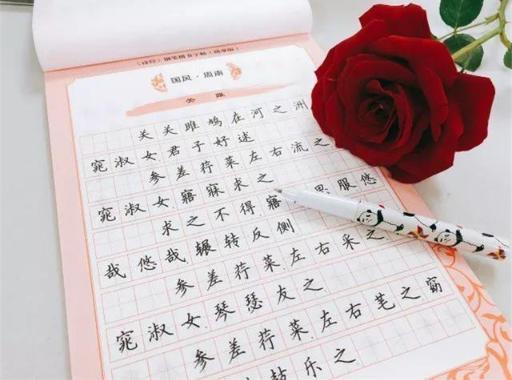 国风·周南
关雎
关关雎鸠在河之洲
窕淑女君子好逑
参差荇菜左右流之
窕淑女寤寐求之
求之不得寤思服悠
哉悠哉辗转反侧
参差荇菜左右采之
窕淑女琴瑟友之
参差荇菜左右笔之窈
鼓乐之